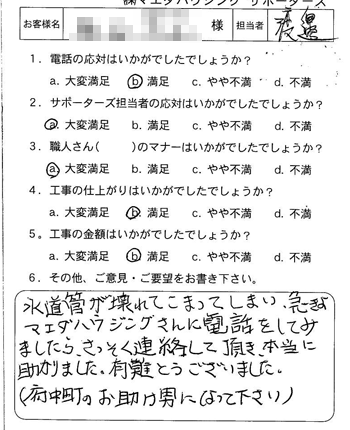 ㈱マエダハウジング サポーターズ
お客様名 様 担当者 渡邊
1．電話の応対はいかがでしたでしょうか？
a. 大変満足 b. 満足 c. やや不満 d. 不満
2．サポーターズ担当者の応対はいかがでしたでしょうか？
a. 大変満足 b. 満足 c. やや不満 d. 不満
3．職人さん( )のマナーはいかがでしたでしょうか？
a. 大変満足 b. 満足 c. やや不満 d. 不満
4．工事の仕上がりはいかがでしたでしょうか？
a. 大変満足 b. 満足 c. やや不満 d. 不満
5．工事の金額はいかがでしたでしょうか？
a. 大変満足 b. 満足 c. やや不満 d. 不満
6．その他、ご意見・ご要望をお書き下さい。
水道管が壊れてこまってしまい、急きょ
マエダハウジングさんに電話をしてみ
ましたら、さっそく連絡して頂き、本当に
助かりました。有難とうございました。
(府中町のお助け男になって下さい)